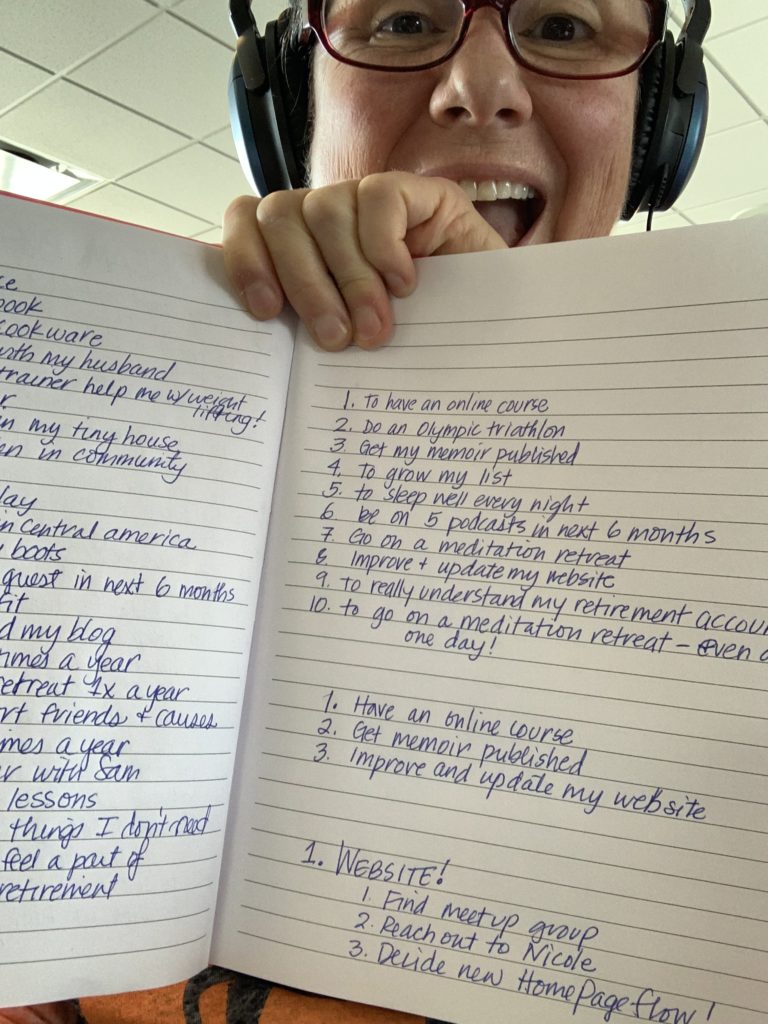 ook
ookware
with my husband
trainer help me w/ weight
lifting!
r.
n my tiny house
en in community
lay
in central america
boots
guest in next 6 months
fit
d my blog
times a year
retreat 1x a year
rt friends & causes
mes a year
r with Sam
lessons
things I don't need
feel a part of
retirement
1. To have an online course
2. Do an Olympic triathlon
3. Get my memoir published
4. To grow my list
5. to sleep well every night
6. be on 5 podcasts in next 6 months
7. Go on a meditation retreat
8. Improve + update my website
9. To really understand my retirement accou
10. to go on a meditation retreat - even a
one day!
1. Have an online course
2. Get memoir published
3. Improve and update my website
1. WEBSITE!
1. Find meetup group
2. Reach out to Nicole
3. Decide new HomePage flow!